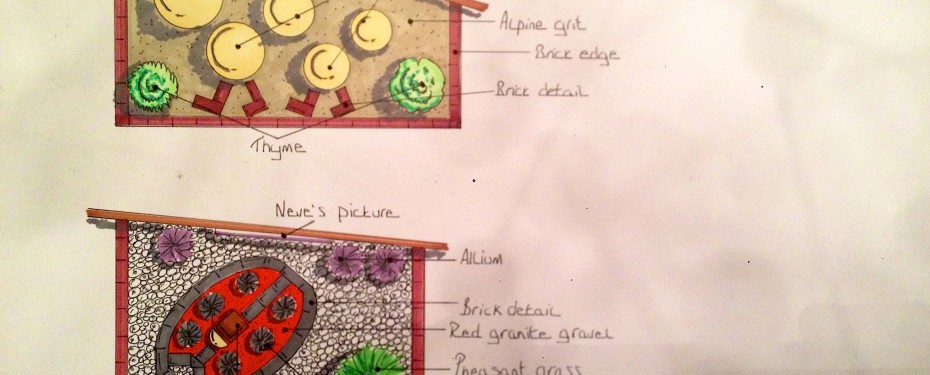 Alpine grit
Brick edge
Brick detail
Thyme
Neve's picture
Allium
Brick detail
Red granite gravel
Pheasant grass